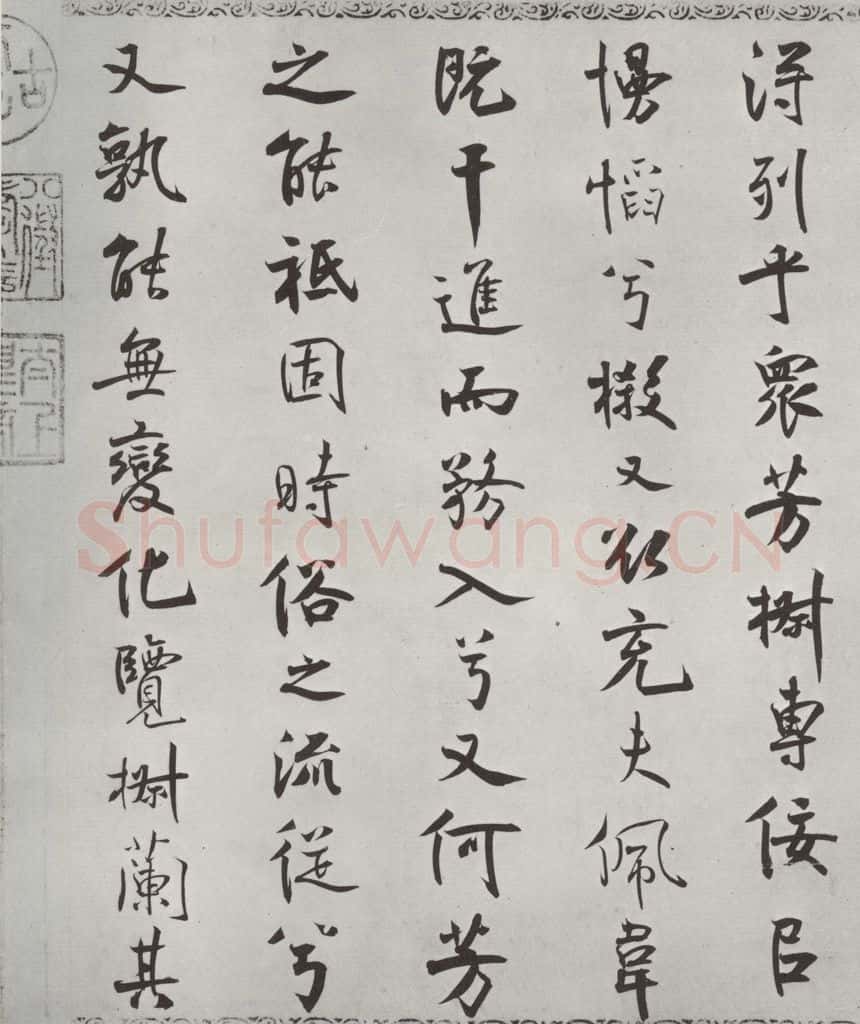 得列乎眾芳椒專佞㠯
慢慆兮樧又欲充夫佩韋
既干進而務入兮又何芳
之能祗固時俗之流從兮
又孰能無變化覽椒蘭其
Shufawang.CN